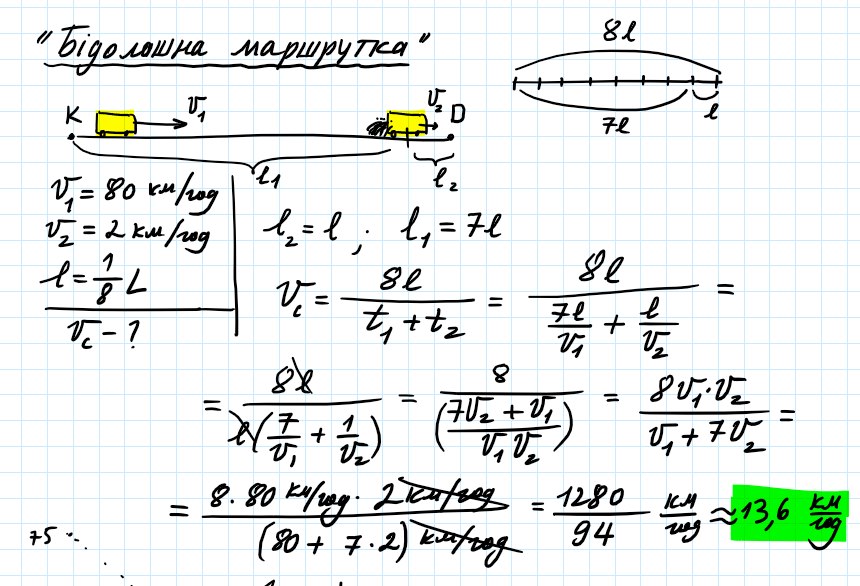 "Бідолошна маршрутка"
8l
7l
l
K
V₁
V₂
D
l₁
l₂
V₁ = 80 км/год
V₂ = 2 км/год
l = 1/8 L
Vc - ?
l₂ = l ; l₁ = 7l
Vc = 8l / (t₁ + t₂) = 8l / (7l/V₁ + l/V₂) =
= 8l / l(7/V₁ + 1/V₂) = 8 / ((7V₂ + V₁) / (V₁V₂)) = 8V₁·V₂ / (V₁ + 7V₂) =
= 8·80 км/год · 2 км/год / (80 + 7·2) км/год = 1280/94 км/год ≈ 13,6 км/год
75